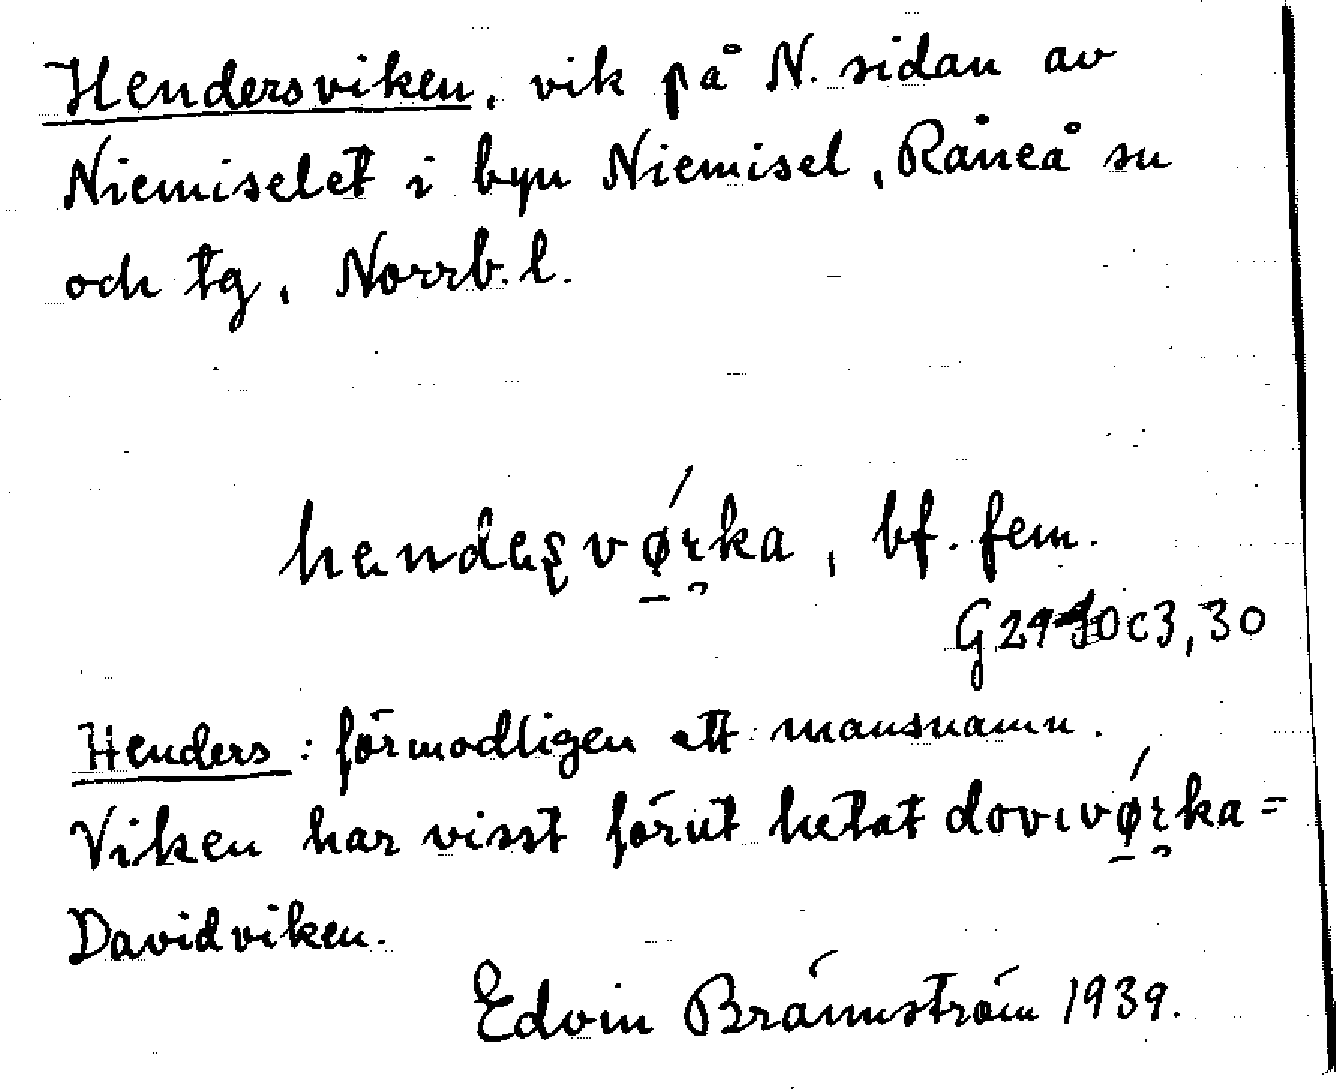 Hendersviken, vik på N. sidan av
Niemiselet i byn Niemisel, Råneå sn
och tg, Norrb. l.
hendɐʂvǿ̱rka, bf. fem.
C3,30
Henders: förmodligen ett mansnamn.
Viken har visst förut hetat dovɪvǿ̱rka =
Davidviken.
Edvin Brännström 1939.